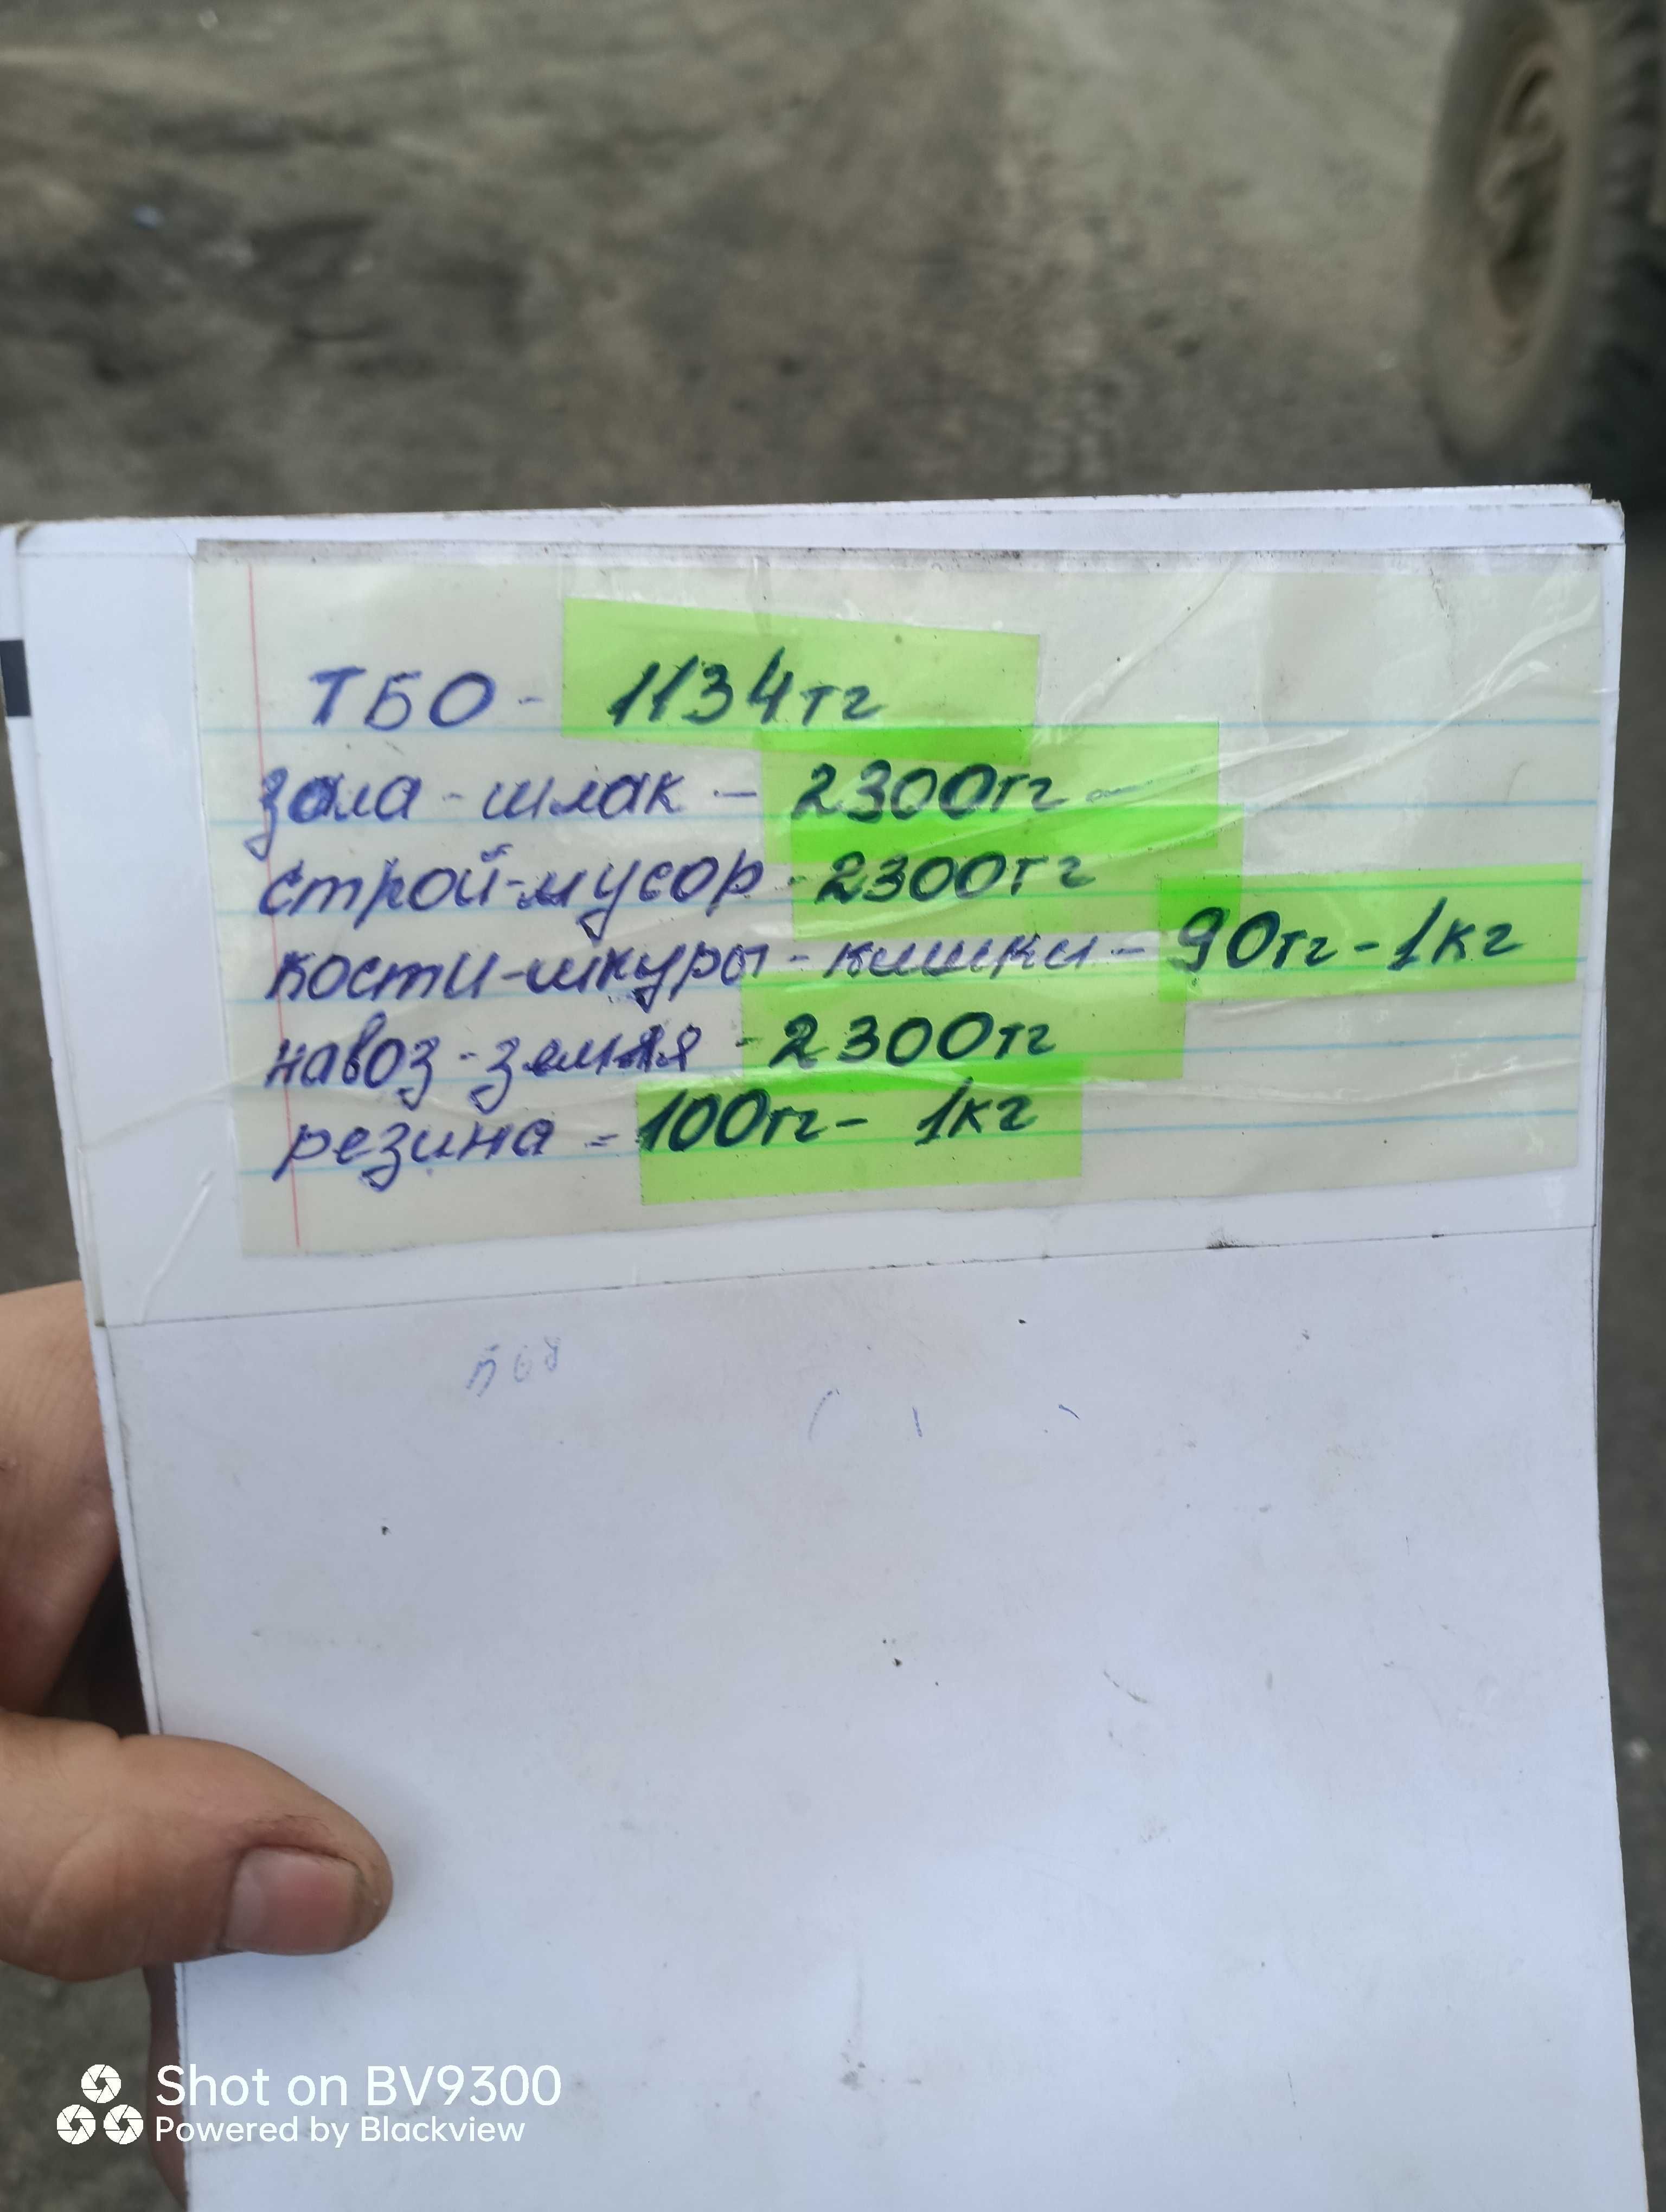 ТБО - 1134тг
зола - шлак - 2300тг -
строй-мусор - 2300тг
кости-шкуры - кишки - 90тг - 1кг
навоз - земля - 2300тг
резина = 100тг - 1кг
Shot on BV9300
Powered by Blackview